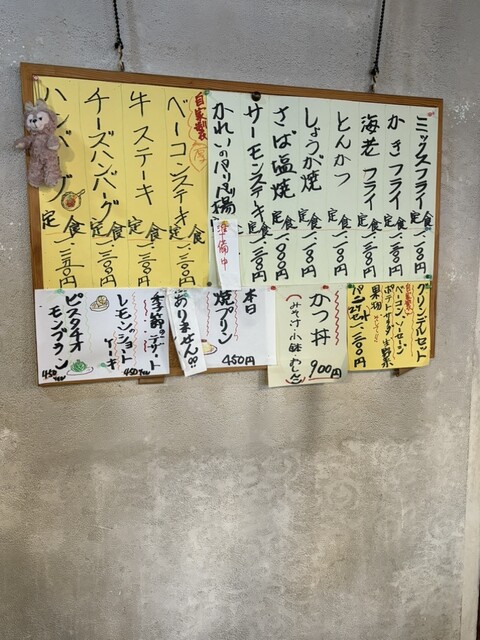 ミックスフライ定食 一、二〇〇円
かきフライ定食 一、二〇〇円
海老フライ定食 一、二〇〇円
とんかつ定食 一、一〇〇円
しょうが焼定食 一、一〇〇円
さば塩焼定食 一、一〇〇円
サーモンステーキ定食 一、一〇〇円
かれいのパリパリ揚
準備中
自家製
ベーコンステーキ定食 一、二〇〇円
牛ステーキ定食 一、三〇〇円
チーズハンバーグ定食 一、三〇〇円
ハンバーグ定食
グリンデルセット
自家製
ベーコン、ソーセージ
ポテトサラダ 生野菜
果物
パン
一、三〇〇円
かつ丼
900円
(みそ汁 小鉢
本日
焼プリン
450円
ありません!!
季節のデザート
レモンショートケーキ
450
ピスタチオ
モンブラン
450